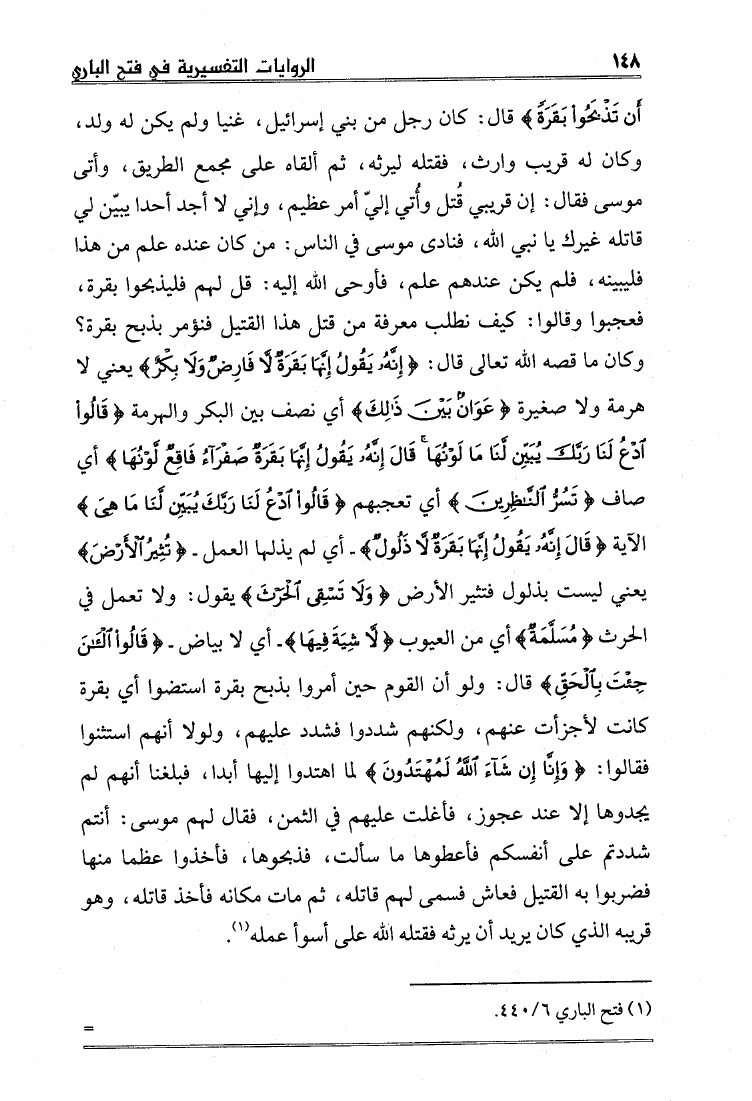 ١٤٨
الروايات التفسيرية في فتح الباري
أَن تَذْبَحُواْ بَقَرَةً ﴾ قال: كان رجل من بني إسرائيل، غنيا ولم يكن له ولد،
وكان له قريب وارث، فقتله ليرثه، ثم ألقاه على مجمع الطريق، وأتى
موسى فقال: إن قريبي قُتل وأُتي إليّ أمر عظيم، وإني لا أجد أحدا يبيّن لي
قاتله غيرك يا نبي الله، فنادى موسى في الناس: من كان عنده علم من هذا
فليبينه، فلم يكن عندهم علم، فأوحى الله إليه: قل لهم فليذبحوا بقرة،
فعجبوا وقالوا: كيف نطلب معرفة من قتل هذا القتيل فنؤمر بذبح بقرة؟
وكان ما قصه الله تعالى قال: ﴿ إِنَّهُۥ يَقُولُ إِنَّهَا بَقَرَةٌ لَّا فَارِضٌ وَلَا بِكْرٌ ﴾ يعني لا
هرمة ولا صغيرة ﴿ عَوَانٌۢ بَيْنَ ذَٰلِكَ ﴾ أي نصف بين البكر والهرمة ﴿ قَالُواْ
ٱدْعُ لَنَا رَبَّكَ يُبَيِّن لَّنَا مَا لَوْنُهَا ۚ قَالَ إِنَّهُۥ يَقُولُ إِنَّهَا بَقَرَةٌ صَفْرَآءُ فَاقِعٌ لَّوْنُهَا ﴾ أي
صاف ﴿ تَسُرُّ ٱلنَّٰظِرِينَ ﴾ أي تعجبهم ﴿ قَالُواْ ٱدْعُ لَنَا رَبَّكَ يُبَيِّن لَّنَا مَا هِىَ ﴾
الآية ﴿ قَالَ إِنَّهُۥ يَقُولُ إِنَّهَا بَقَرَةٌ لَّا ذَلُولٌ ﴾ ـ أي لم يذلها العمل ـ ﴿ تُثِيرُ ٱلْأَرْضَ ﴾
يعني ليست بذلول فتثير الأرض ﴿ وَلَا تَسْقِى ٱلْحَرْثَ ﴾ يقول: ولا تعمل في
الحرث ﴿ مُسَلَّمَةٌ ﴾ أي من العيوب ﴿ لَّا شِيَةَ فِيهَا ﴾ ـ أي لا بياض ـ ﴿ قَالُواْ ٱلْـَٰٔنَ
جِئْتَ بِٱلْحَقِّ ﴾ قال: ولو أن القوم حين أمروا بذبح بقرة استضوا أي بقرة
كانت لأجزأت عنهم، ولكنهم شددوا فشدد عليهم، ولولا أنهم استثنوا
فقالوا: ﴿ وَإِنَّا إِن شَآءَ ٱللَّهُ لَمُهْتَدُونَ ﴾ لما اهتدوا إليها أبدا، فبلغنا أنهم لم
يجدوها إلا عند عجوز، فأغلت عليهم في الثمن، فقال لهم موسى: أنتم
شددتم على أنفسكم فأعطوها ما سألت، فذبحوها، فأخذوا عظما منها
فضربوا به القتيل فعاش فسمى لهم قاتله، ثم مات مكانه فأخذ قاتله، وهو
قريبه الذي كان يريد أن يرثه فقتله الله على أسوأ عمله(١).
(١) فتح الباري ٤٤٠/٦.
=